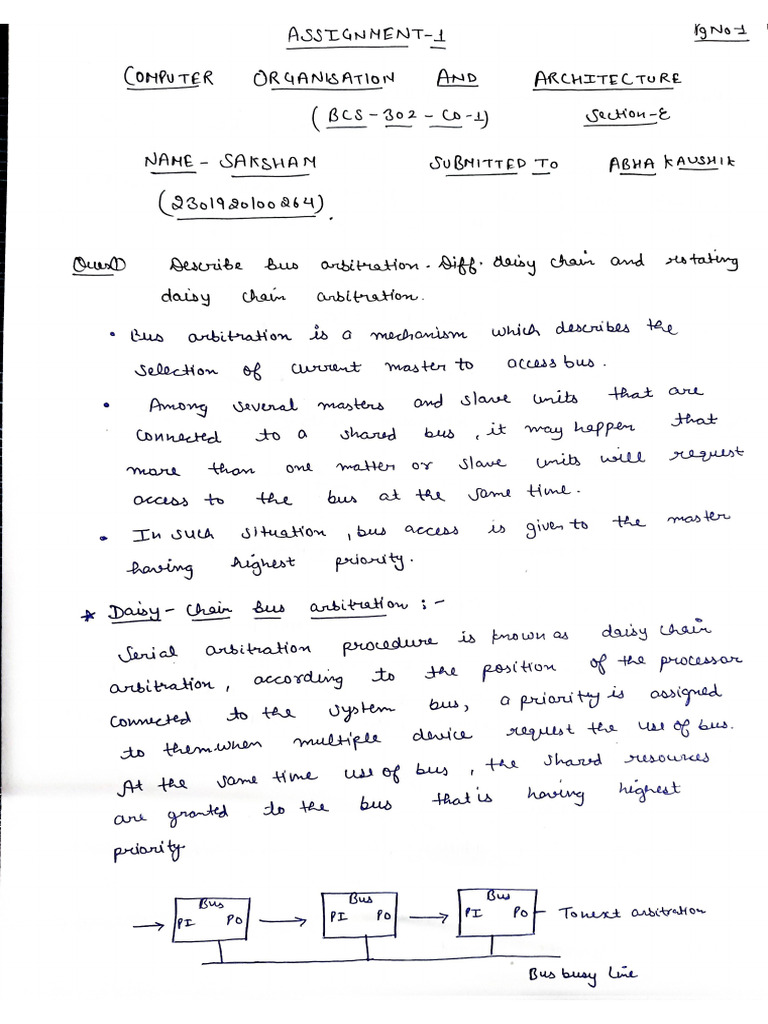 ASSIGNMENT-1
Pg No-1
COMPUTER ORGANISATION AND ARCHITECTURE
(BCS-302-CO-1) Section-E
NAME - SAKSHAM SUBMITTED TO ABHA KAUSHIK
(2301920100264).
Ques1) Describe bus arbitration. Diff. daisy chain and rotating
daisy chain arbitration.
• Bus arbitration is a mechanism which describes the
selection of current master to access bus.
• Among several masters and slave units that are
connected to a shared bus, it may happen that
more than one matter or slave units will request
access to the bus at the same time.
• In such situation, bus access is given to the master
having highest priority.
* Daisy-Chain Bus arbitration :-
Serial arbitration procedure is known as daisy chair
arbitration, according to the position of the processor
connected to the system bus, a priority is assigned
to them.when multiple device request the use of bus.
At the same time use of bus, the shared resources
are granted to the bus that is having highest
priority
Bus Bus Bus
PI PO PI PO PI PO To next arbitration
Bus busy line